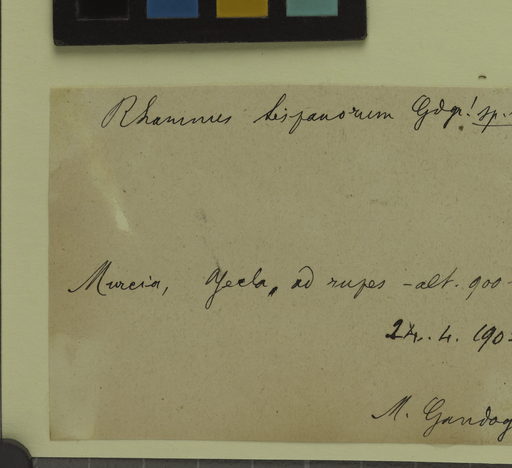 Rhamnus hispanorum Gdgr! sp.
Murcia, Yecla, ad rupes - alt. 900-
24. 4. 190
M. Gandog